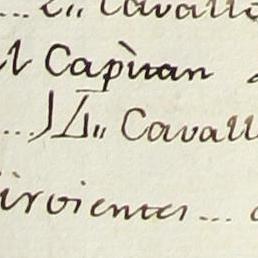 ... 2,, Cavalle
el Capitan
...) 1,, Cavall
irvientes ...